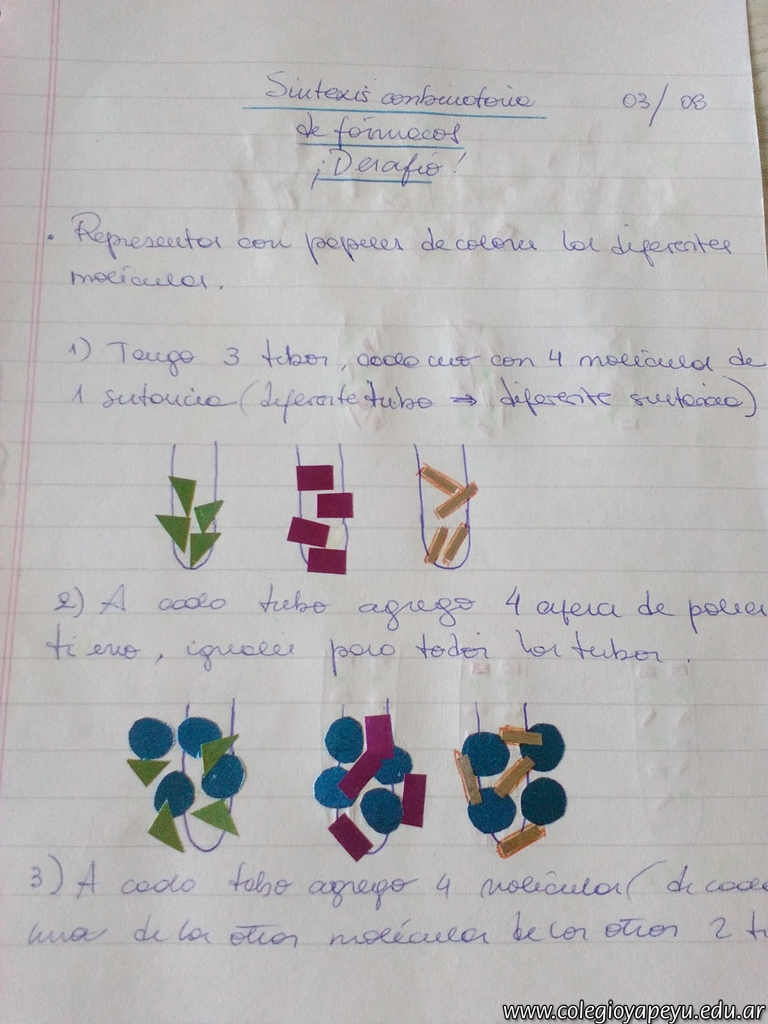 Sintexis combinatoria 03/08
de fármacos
¡Desafío!
• Representar con papeles de colores las diferentes
moléculas.
1) Tengo 3 tubos, cada uno con 4 moléculas de
1 sutancia (diferente tubo ⇒ diferente sustancia)
2) A cada tubo agrego 4 esfera de polies
ti eno, iguales para todos los tubos.
3) A cada tubo agrego 4 moléculas (de cada
una de las otras moléculas de los otros 2 t
www.colegioyapeyu.edu.ar